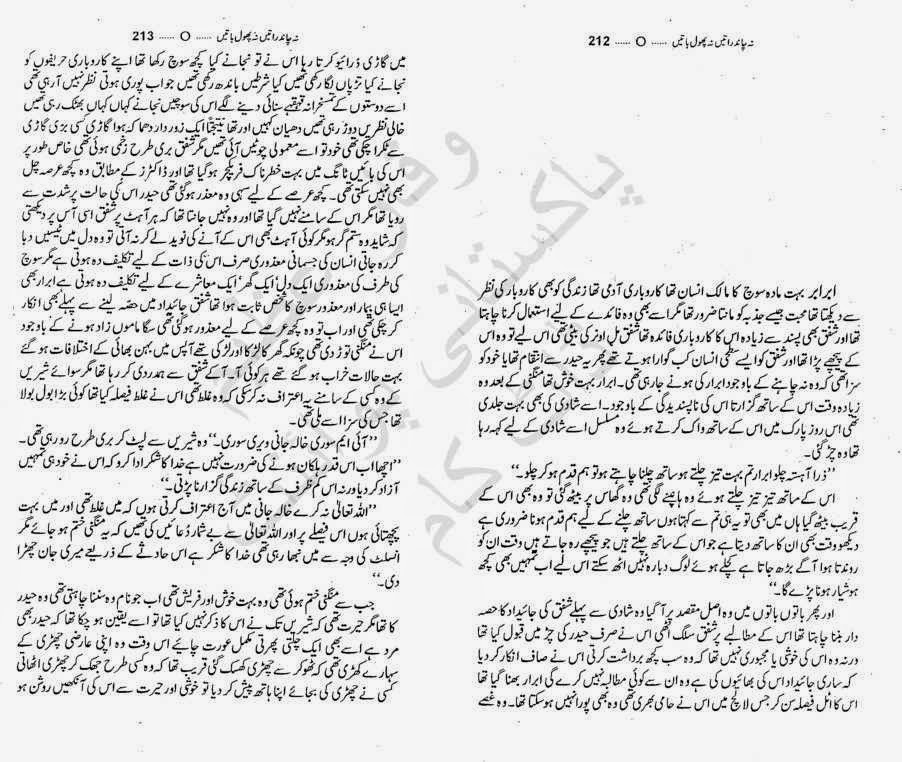 نہ چاند راتیں نہ پھول باتیں ...... O ...... 212
ابرابر بہت مادہ سوچ کا مالک انسان تھا کاروباری آدمی تھا زندگی کو بھی کاروبار کی نظر
سے دیکھتا تھا محبت جیسے جذبہ کو مانتا ضرور تھا مگر اسے بھی وہ فائدے کے لیے استعمال کرنا چاہتا
تھا اور شفق بھی پسند سے زیادہ اس کا کاروباری فائدہ تھا شفق مل اونر کی بیٹی تھی اس لیے تو وہ اس
کے پیچھے پڑا تھا اور شفق کو ایسے سطحی انسان کب گوارا ہوتے تھے پھر یہ حیدر سے انتقام تھا یا خود کو
سزا تھی کہ وہ نہ چاہنے کے باوجود ابرار کی ہونے جا رہی تھی۔ ابرار بہت خوش تھا منگنی کے بعد وہ
زیادہ وقت اس کے ساتھ گزارتا اس کی ناپسندیدگی کے باوجود۔ اسے شادی کی بھی بہت جلدی
تھی اس روز پارک میں اس کے ساتھ واک کرتے ہوئے وہ مسلسل اسے شادی کے لیے کہہ رہا
تھا وہ چڑ گئی۔
”ذرا آہستہ چلو ابرار تم بہت تیز چلتے ہو ساتھ چلنا چاہتے ہو تو ہم قدم ہو کر چلو۔“
اس کے ساتھ تیز تیز چلتے ہوئے وہ ہانپنے لگی تھی وہ گھاس پر بیٹھ گئی تو وہ بھی اس کے
قریب بیٹھ گیا ہاں میں بھی تو یہ ہی تم سے کہتا ہوں ساتھ چلنے کے لیے ہم قدم ہونا ضروری ہے
دیکھو وقت بھی ان کا ساتھ دیتا ہے جو اس کے ساتھ چلتے ہیں جو پیچھے رہ جاتے ہیں وقت ان کو
روندتا ہوا آگے بڑھ جاتا ہے کچلے ہوئے لوگ دوبارہ نہیں اٹھ سکتے اس لیے اب تمہیں بھی کچھ
ہوشیار ہونا پڑے گا۔“
اور پھر باتوں باتوں میں وہ اصل مقصد پر آ گیا وہ شادی سے پہلے شفق کی جائیداد کا حصہ
دار بننا چاہتا تھا اس کے مطالبے پر شفق سلگ اٹھی اس نے صرف حیدر کی چڑ میں قبول کیا تھا
ورنہ وہ اس کی خوشی یا مجبوری نہیں تھا کہ وہ سب کچھ برداشت کرتی اس نے صاف انکار کر دیا
کہ ساری جائیداد اس کی بھائیوں کی ہے وہ ان سے کوئی مطالبہ نہیں کرے گی ابرار بھنا گیا تھا
اس کا اٹل فیصلہ سن کر جس لالچ میں اس نے حامی بھری تھی وہ بھی پورا نہیں ہو سکتا تھا۔ وہ غصے
نہ چاند راتیں نہ پھول باتیں ...... O ...... 213
میں گاڑی ڈرائیو کرتا رہا اس نے تو نجانے کیا کچھ سوچ رکھا تھا اپنے کاروباری حریفوں کو
نجانے کیا تڑیاں لگا رکھی تھیں کیا شرطیں باندھ رکھی تھیں جو اب پوری ہوتی نظر نہیں آ رہی تھی
اسے دوستوں کے تمسخرانہ قہقہے سنائی دینے لگے اس کی سوچیں نجانے کہاں کہاں بھٹک رہی تھیں
خالی نظریں دوڑ رہی تھیں دھیان کہیں اور تھا نتیجتاً ایک زور دار دھماکہ ہوا گاڑی کسی بڑی گاڑی
سے ٹکرا چکی تھی خود تو اسے معمولی چوٹیں آئی تھیں مگر شفق بری طرح زخمی ہوئی تھی خاص طور پر
اس کی بائیں ٹانگ میں بہت خطرناک فریکچر ہو گیا تھا اور ڈاکٹرز کے مطابق وہ کچھ عرصہ چل
بھی نہیں سکتی تھی۔ کچھ عرصے کے لیے سہی وہ معذور ہو گئی تھی حیدر اس کی حالت پر شدت سے
رویا تھا مگر اس کے سامنے نہیں گیا تھا اور وہ نہیں جانتا تھا کہ ہر آہٹ پر شفق اسی آس پر دیکھتی
کہ شاید وہ ستم گر ہو مگر کوئی آہٹ بھی اس کے آنے کی نوید لے کر نہ آتی تو وہ دل میں ٹیسیں دبا
کر رہ جاتی انسان کی جسمانی معذوری صرف اس کی ذات کے لیے تکلیف دہ ہوتی ہے مگر سوچ
کی طرف کی معذوری ایک دل، ایک گھر، ایک معاشرے کے لیے تکلیف دہ ہوتی ہے ابرار بھی
ایسا ہی بیمار اور معذور سوچ کا شخص ثابت ہوا تھا شفق جائیداد میں حصہ لینے سے پہلے بھی انکار
کر چکی تھی اور اب تو وہ کچھ عرصے کے لیے معذور ہو گئی تھی سگا ماموں زاد ہونے کے باوجود
اس نے منگنی توڑ دی تھی چونکہ گھر کا لڑکا اور لڑکی تھے آپس میں بہن بھائی کے اختلافات ہو گئے
بہت حالات خراب ہو گئے تھے ہر کوئی آ۔ آ کے شفق سے ہمدردی کر رہا تھا مگر سوائے شیریں
کے وہ کسی کے سامنے یہ اعتراف نہ کر سکی کہ وہ غلط تھی اس نے غلط فیصلہ کیا تھا کوئی بڑا بول بولا
تھا جس کی سزا اسے ملی تھی۔
”آئی ایم سوری خالہ جانی ویری سوری۔“ وہ شیریں سے لپٹ کر بری طرح رو رہی تھی۔
”اچھا اب اس قدر ہلکان ہونے کی ضرورت نہیں ہے خدا کا شکر ادا کرو کہ اس نے خود ہی تمہیں
آزاد کر دیا ورنہ اس کم ظرف کے ساتھ زندگی گزارنا پڑتی۔“
”اللہ تعالیٰ نہ کرے خالہ جانی میں آج اعتراف کرتی ہوں کہ میں غلط تھی اور میں بہت
پچھتائی ہوں اس فیصلے پر اور اللہ تعالیٰ سے بے شمار دُعائیں کی تھیں کہ یہ منگنی ختم ہو جائے مگر
انسلٹ کی وجہ سے میں نبھا رہی تھی خدا کا شکر ہے اس حادثے کے ذریعے میری جان چھڑا
دی۔“
جب سے منگنی ختم ہوئی تھی وہ بہت خوش اور فریش تھی اب جو نام وہ سننا چاہتی تھی وہ حیدر
کا تھا مگر حیرت تھی کہ شیریں تک نے اس کا ذکر نہیں کیا تھا تو اسے یقین ہو چکا تھا کہ حیدر بھی
مرد ہے اسے بھی ایک چلتی پھرتی مکمل عورت چاہئے اس وقت وہ اپنی عارضی چھڑی کے
سہارے کھڑی تھی کہ ٹھوکر سے چھڑی کھسک گئی قریب تھا کہ وہ کسی طرح جھک کر چھڑی اٹھاتی
کسی نے چھڑی کی بجائے اپنا ہاتھ پیش کر دیا تو خوشی اور حیرت سے اس کی آنکھیں روشن ہو